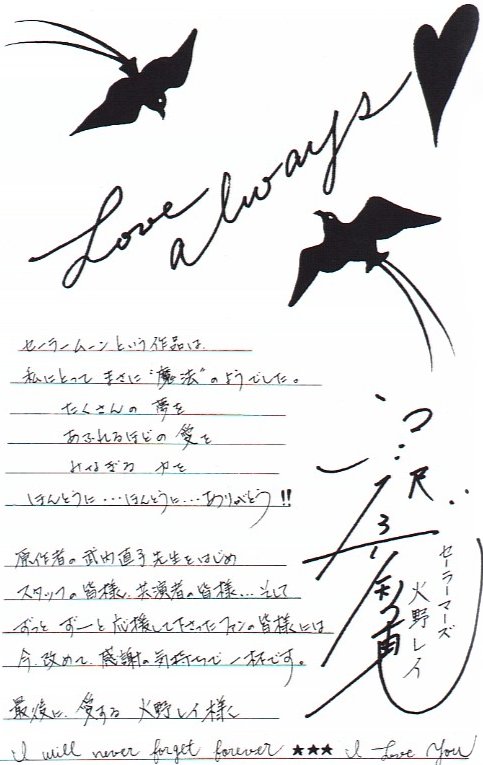 Love
always
セーラームーンという作品は、
私にとって まさに"魔法"のようでした。
たくさんの 夢を
あふれるほどの 愛を
みなぎる 力を
ほんとうに…ほんとうに…ありがとう!!
原作者の 武内直子先生をはじめ
スタッフの皆様、共演者の皆様…そして
ずっと ずーっと 応援して下さったファンの皆様には
今、改めて、感謝の気持ちで一杯です。
最後に、愛する 火野レイ様へ
I will never forget forever ★★★ I Love You
セーラーマーズ
火野レイ